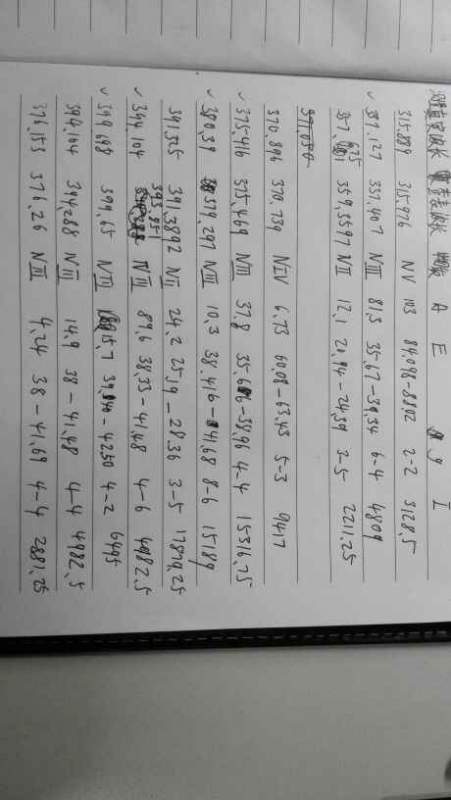 测量波长 参考波长 A E g I
315.889 315.976 N V 103 84.098-88.02 2-2 3128.5
✓ 357.127 357.407 N III 81.5 35.67-39.34 6-4 4809
357.625 359.3597 N II 12.1 20.94-24.39 3-5 2211.25
370.896 370.739 N IV 6.73 60.08-63.43 5-3 9417
✓ 375.416 375.469 N III 37.8 35.66-38.96 4-4 15316.75
✓ 380.39 379.297 N III 10.3 38.416-41.68 8-6 15189
391.325 391.3892 N II 24.2 25.19-28.36 3-5 17879.25
✓ 394.104 393.851 N III 89.6 38.33-41.48 4-6 4982.5
✓ 399.698 399.65 N III 15.7 39.40-42.50 4-2 6495
394.104 394.288 N III 14.9 38-41.48 4-4 4982.5
377.153 376.26 N III 4.24 38-41.69 4-4 2881.25